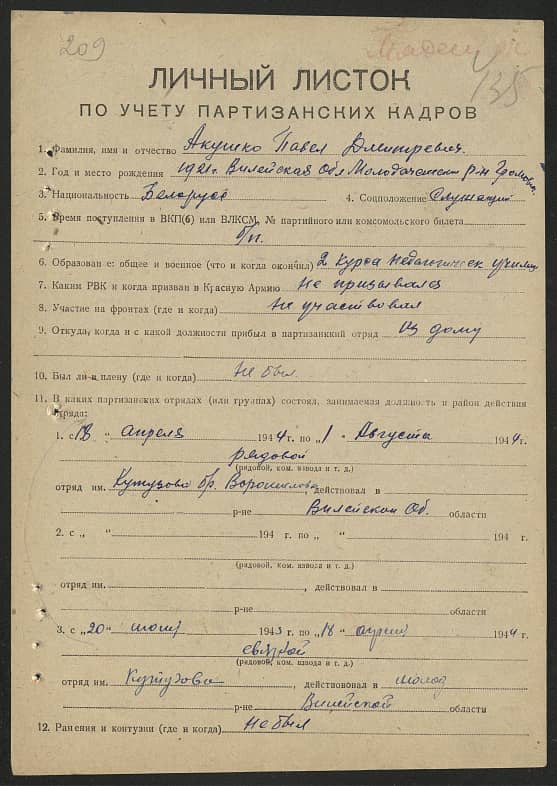 209
135
ЛИЧНЫЙ ЛИСТОК
ПО УЧЕТУ ПАРТИЗАНСКИХ КАДРОВ
1. Фамилия, имя и отчество Акушко Павел Дмитревич.
2. Год и место рождения 1921г. Вилейская Обл Молодечнански р-н
3. Национальность Беларус 4. Соцположение Служащий
5. Время поступления в ВКП(б) или ВЛКСМ, № партийного или комсомольского билета
б/п.
6. Образование: общее и военное (что и когда окончил) 2 курса педагогическ училищ
7. Каким РВК и когда призван в Красную Армию Не призывался
8. Участие на фронтах (где и когда) Не участвовал
9. Откуда, когда и с какой должности прибыл в партизанский отряд Из дому
10. Был ли в плену (где и когда) Не был
11. В каких партизанских отрядах (или группах) состоял, занимаемая должность и район действия
отряда:
1. с „18“ апреля 1944 г. по „1“ Августа 1944 г.
рядовой
(рядовой, ком. взвода и т. д.)
отряд им. Кутузова бр. Ворошилова, действовал в
р-не Вилейской Об. области
2. с „ “ 194 г. по „ “ 194 г.
(рядовой, ком. взвода и т. д.)
отряд им. , действовал в
р-не области
3. с „20“ июля 1943 г. по „18“ апреля 1944 г.
связной
(рядовой, ком. взвода и т. д.)
отряд им. Кутузова, действовал в молод
р-не Вилейской области
12. Ранения и контузии (где и когда) Не был